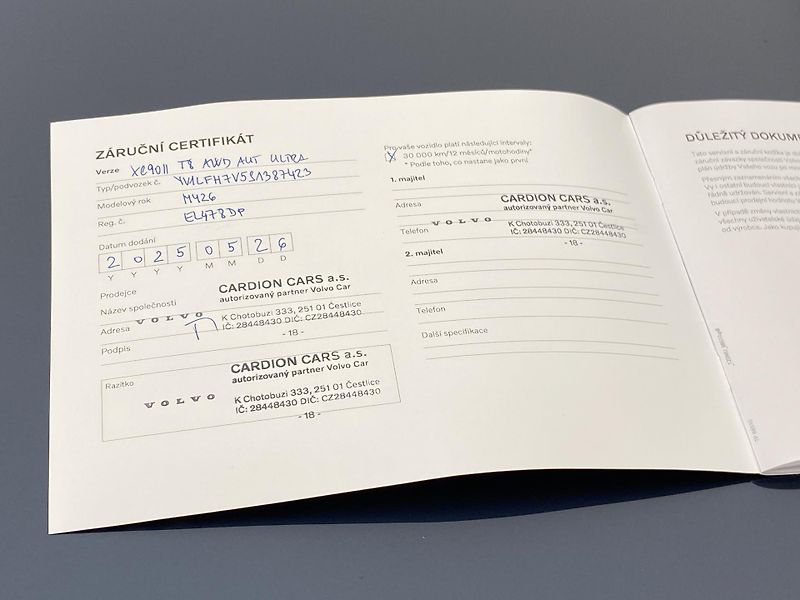 ZÁRUČNÍ CERTIFIKÁT
Verze XC90II T8 AWD AUT ULTRA
Typ/podvozek č. YV1LFH7V5S1387423
Modelový rok MY26
Reg. č. EL478DP
Datum dodání
2 0 2 5 0 5 2 6
Y Y Y Y M M D D
Prodejce
Název společnosti
CARDION CARS a.s.
autorizovaný partner Volvo Car
Adresa
VOLVO
K Chotobuzi 333, 251 01 Čestlice
IČ: 28448430 DIČ: CZ28448430
- 18 -
Podpis
Razítko
CARDION CARS a.s.
autorizovaný partner Volvo Car
VOLVO
K Chotobuzi 333, 251 01 Čestlice
IČ: 28448430 DIČ: CZ28448430
- 18 -
Pro vaše vozidlo platí následující intervaly:
X 30 000 km/12 měsíců/motohodiny*
* Podle toho, co nastane jako první
1. majitel
Adresa
CARDION CARS a.s.
autorizovaný partner Volvo Car
Telefon
VOLVO
K Chotobuzi 333, 251 01 Čestlice
IČ: 28448430 DIČ: CZ28448430
- 18 -
2. majitel
Adresa
Telefon
Další specifikace
DŮLEŽITÝ DOKUM
Tato servisní a záruční knížka je dů
záruční závazky společnosti Volvo
plán údržby Vašeho vozu po min
Přesným zaznamenáním všech
Vy i ostatní budoucí vlastníci
řádně udržován. Servisní a z
budoucí prodejní hodnotu v
V případě změny vlastnic
všechny uživatelské úda
od výrobce. Jako kupuj